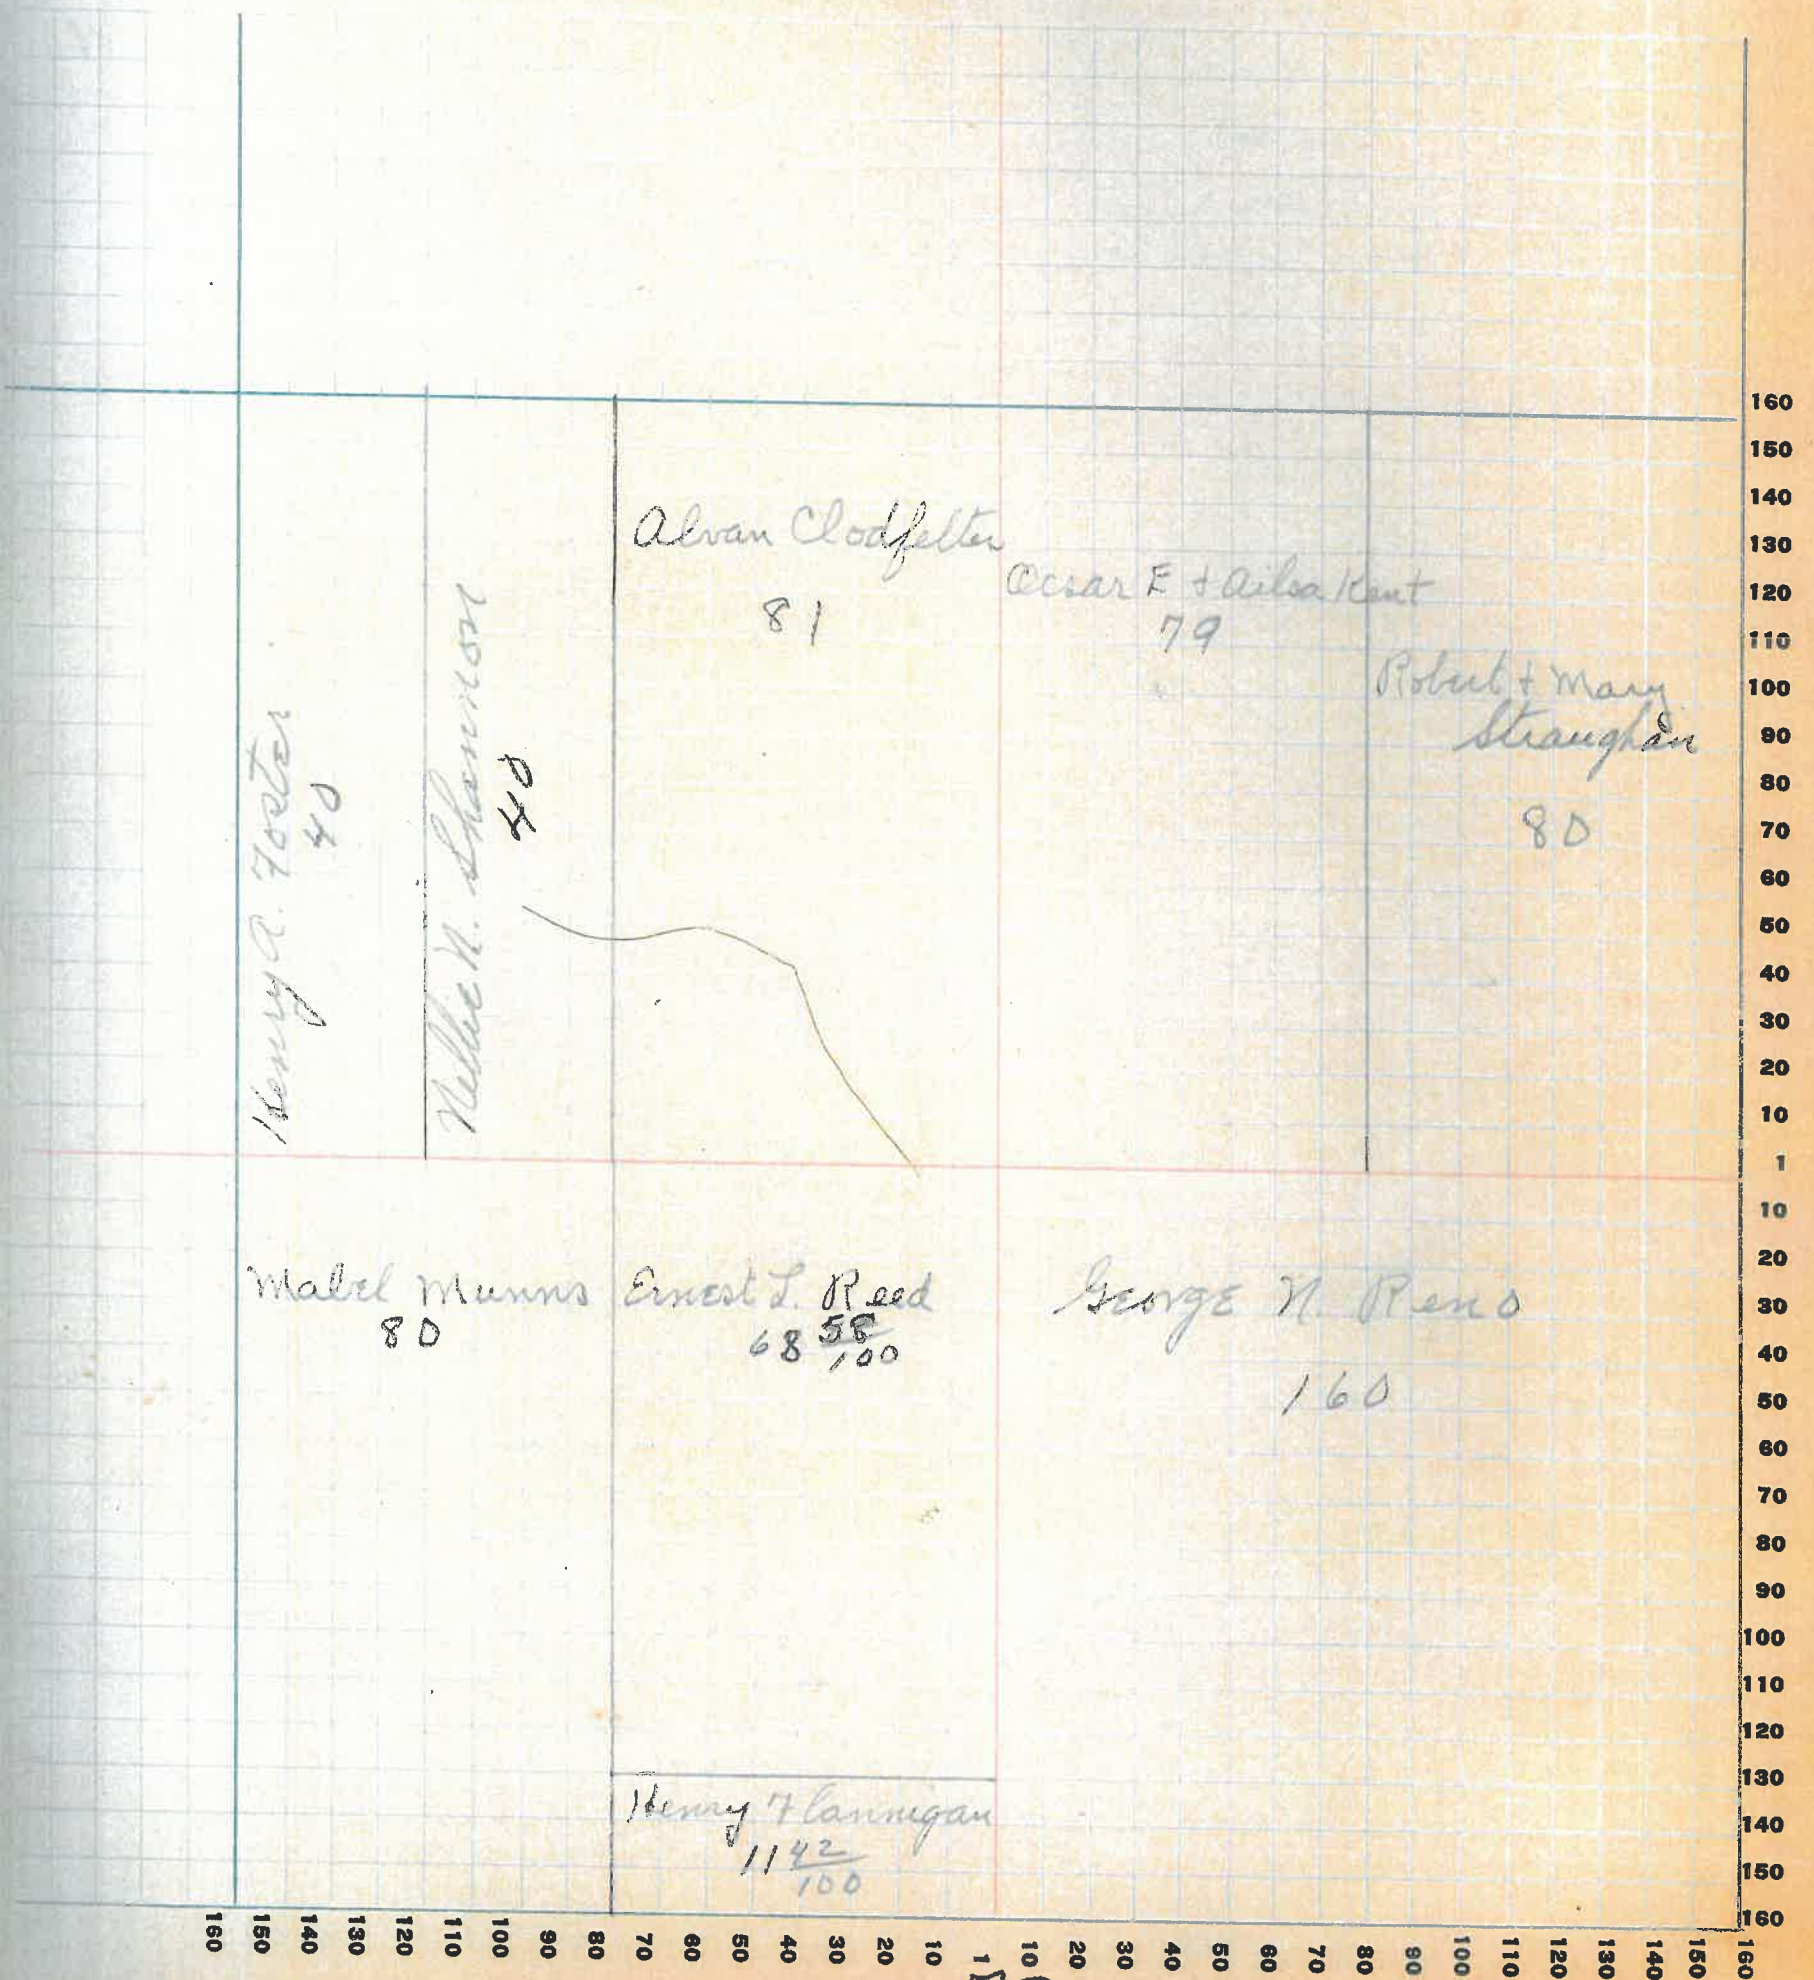 Henry A. Foster
40
Nellie N. Shannon
40
Alvan Clodfelter
81
Oscar E + Ailsa Kent
79
Robert + Mary
Straughan
80
Mabel Munns
80
Ernest L. Reed
68 58/100
George N. Reno
160
Henry Flannigan
11 42/100
160
150
140
130
120
110
100
90
80
70
60
50
40
30
20
10
1
10
20
30
40
50
60
70
80
90
100
110
120
130
140
150
160
160 150 140 130 120 110 100 90 80 70 60 50 40 30 20 10 1 10 20 30 40 50 60 70 80 90 100 110 120 130 140 150 160